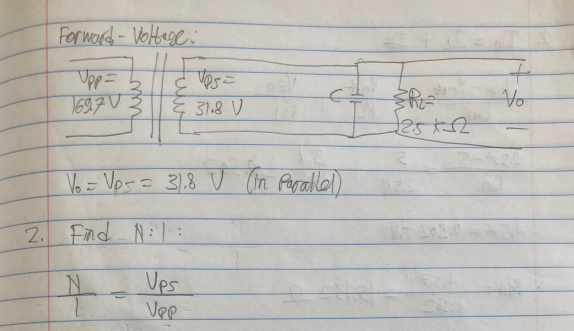 Forward-Voltage:
Vpp=
169.7 V
Vps=
31.8 V
C
RL=
2.5 kΩ
+
Vo
-
Vo = Vps = 31.8 V (in Parallel)
2. Find N:1:
N/1 = Vps/Vpp